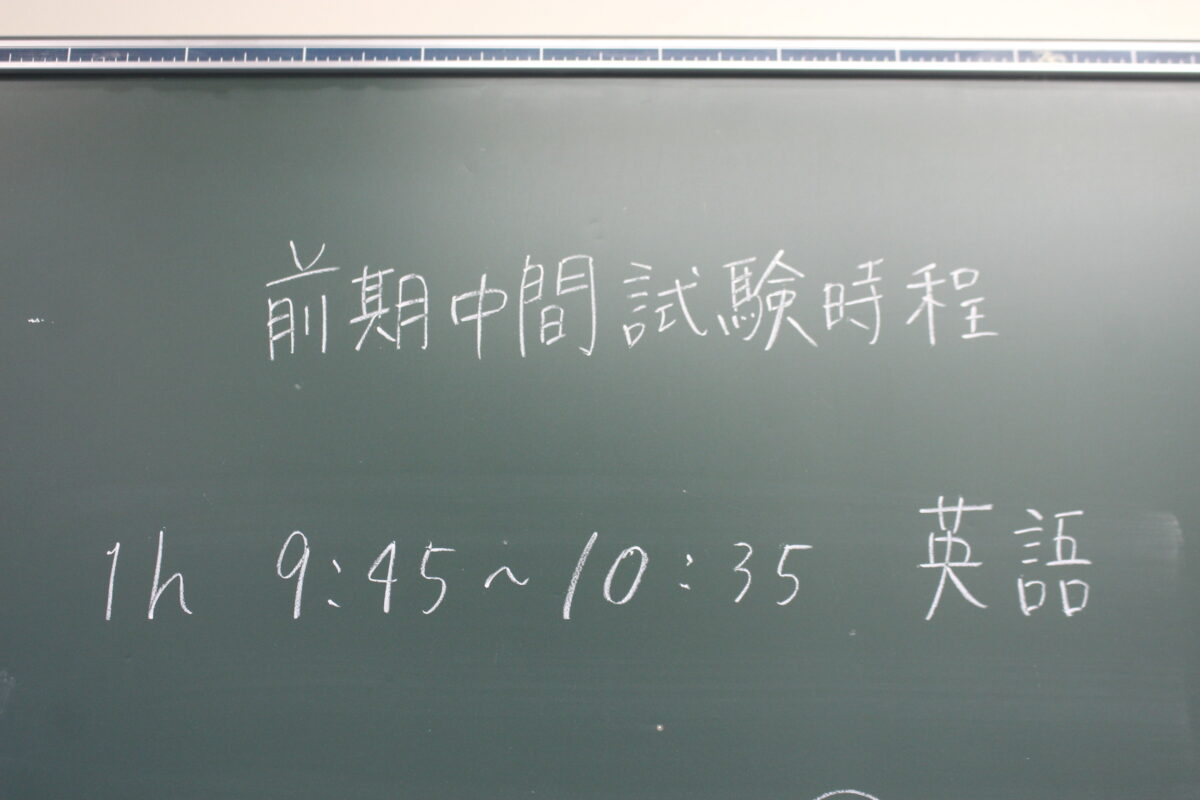 前期中間試験時程
1h 9:45～10:35 英語